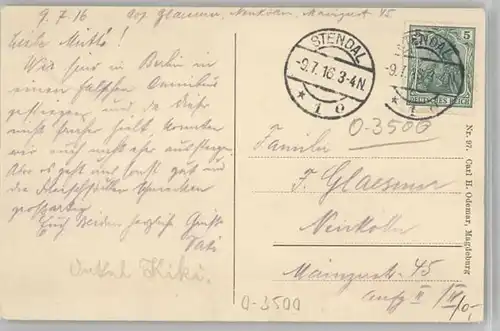 9.7.16 Glaesmer, Neukölln, Mainzerst 45
Liebe Mutti!
Wir sind in Berlin in
einen falschen Omnibus
gestiegen und da
nicht früher hielt, konnten
wir auch nicht eher aussteigen.
Aber es geht uns sonst gut und
die
großartig.
Euch Beiden herzliche Grüße
STENDAL
-9.7.16 3-4N
* 1 c
STENDAL
5
DEUTSCHES REICH
0-3500
Familie
F. Glaesmer
Neukölln
Mainzerst-45
Aufg II
0-3500
Nr. 97. Carl H. Odemar, Magdeburg